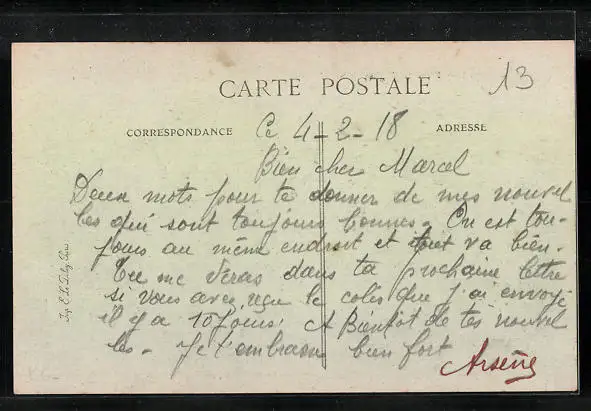 13
CARTE POSTALE
CORRESPONDANCE
ADRESSE
Ce 4-2-18
Bien cher Marcel
Deux mots pour te donner de mes nouvel
les qui sont toujours bonnes. On est tou-
jours au même endroit et tout va bien.
Tu me diras dans ta prochaine lettre
si vous avez reçu le colis que j'ai envoyé
il y a 10 jours. A Bientôt de tes nouvel
les - Je t'embrasse bien fort
Arsène
Imp. E. Le Deley, Paris